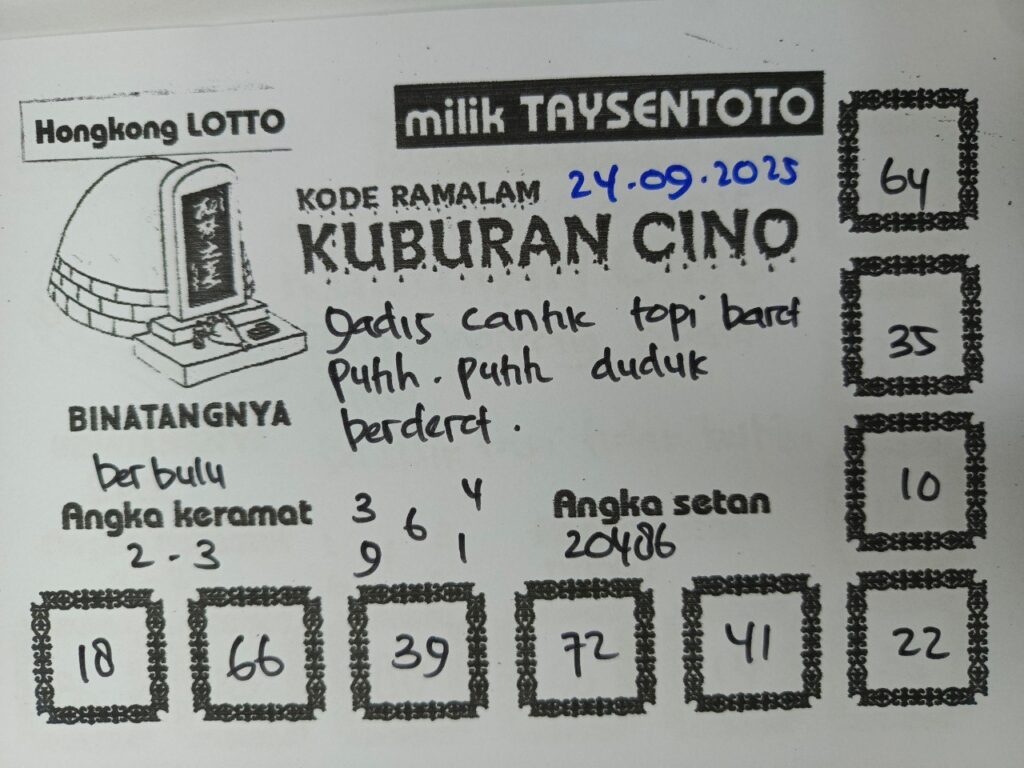 Hongkong LOTTO
milik TAYSENTOTO
KODE RAMALAM 24.09.2025
KUBURAN CINO
gadis cantik topi baret
putih. putih duduk
berderet.
BINATANGNYA
berbulu
Angka keramat
2 - 3
3 4
6
9 1
Angka setan
20486
64
35
10
18 66 39 72 41 22